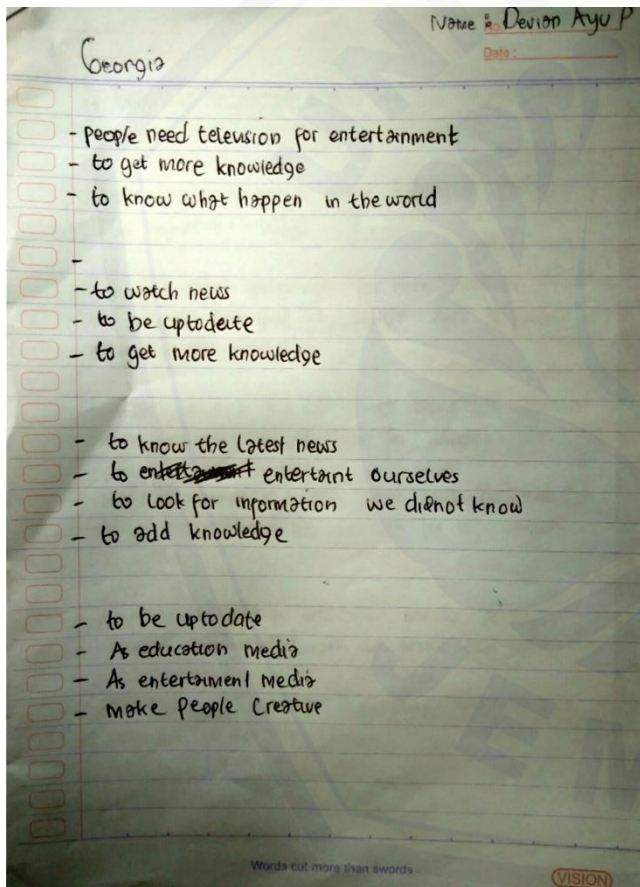 Name : Devian Ayu P
Date :
Georgia
- people need television for entertainment
- to get more knowledge
- to know what happen in the world
-
- to watch news
- to be uptodeite
- to get more knowledge
- to know the latest news
- to entertaint ourselves
- to look for information we didnot know
- to add knowledge
- to be uptodate
- As education media
- As entertaiment media
- make people Creative
Words cut more than swords
VISION